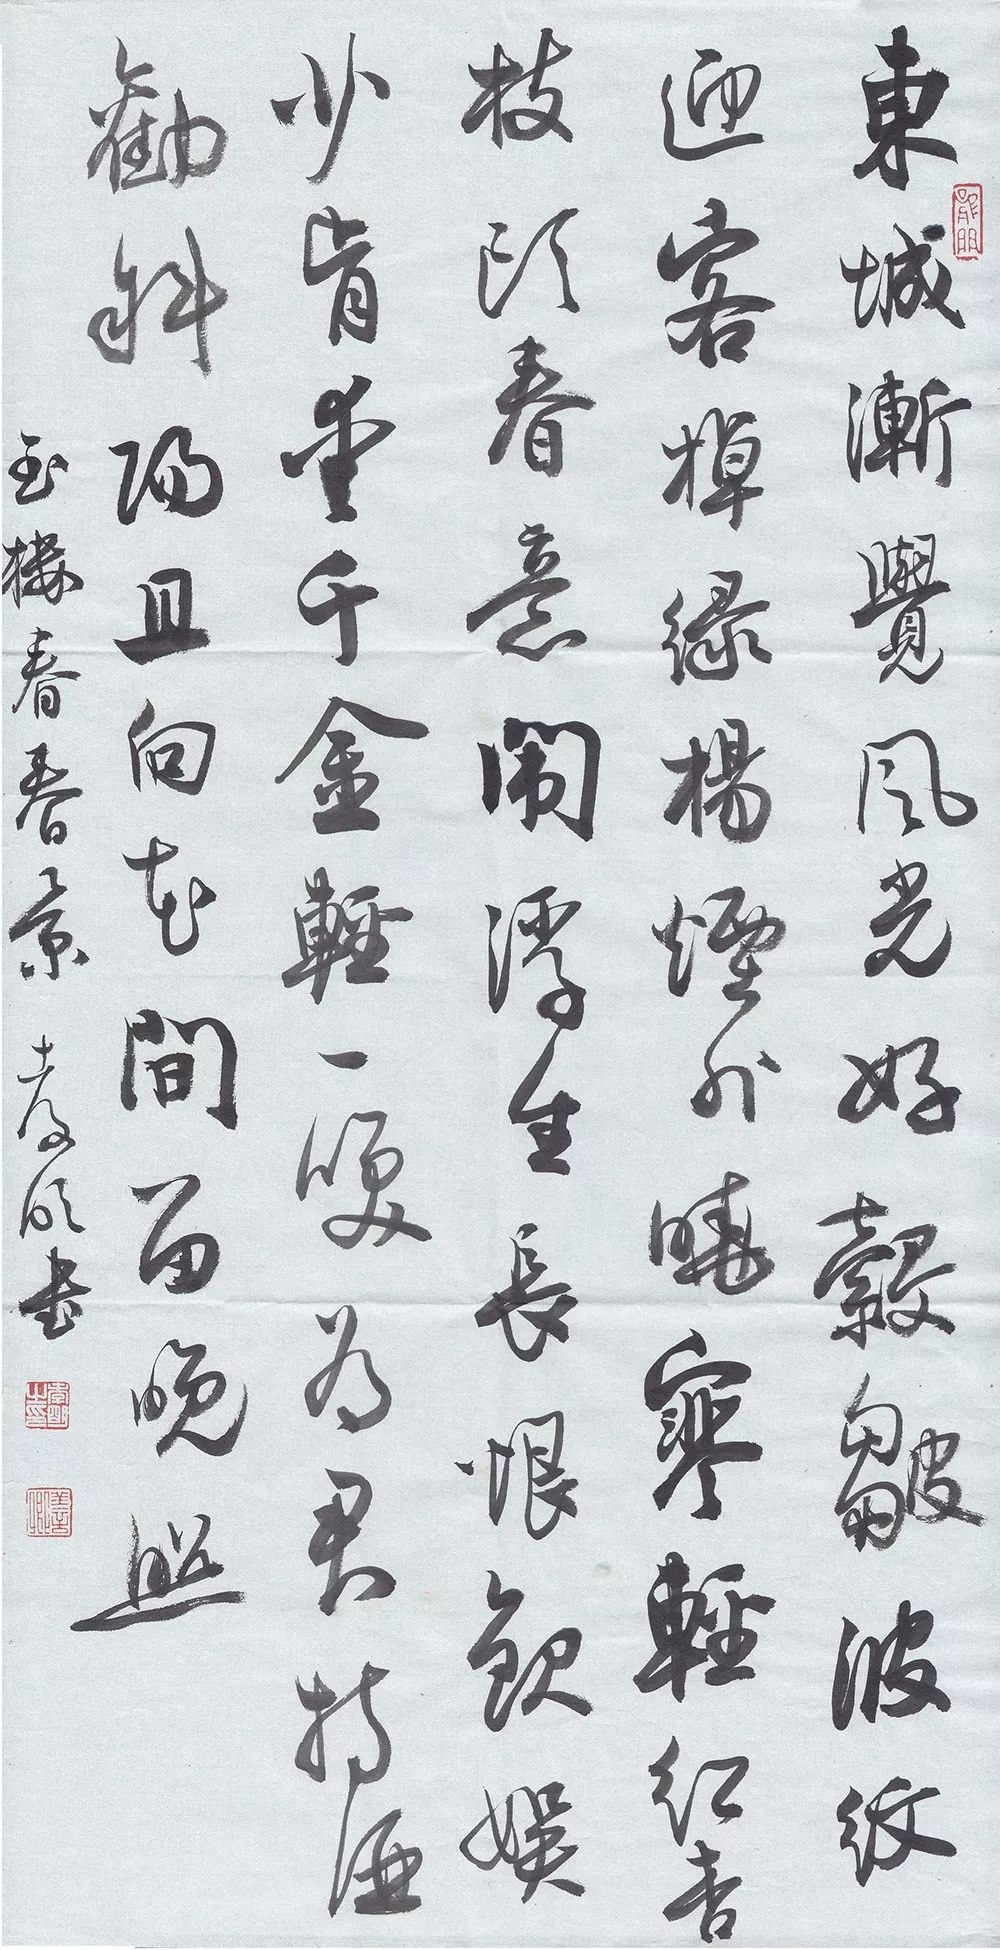 東城漸覺風光好縠皺波紋
迎客棹綠楊煙外曉寒輕紅杏
枝頭春意鬧浮生長恨歡娛
少肯愛千金輕一咲為君持酒
勸斜陽且向花間留晚照
玉樓春春景 書